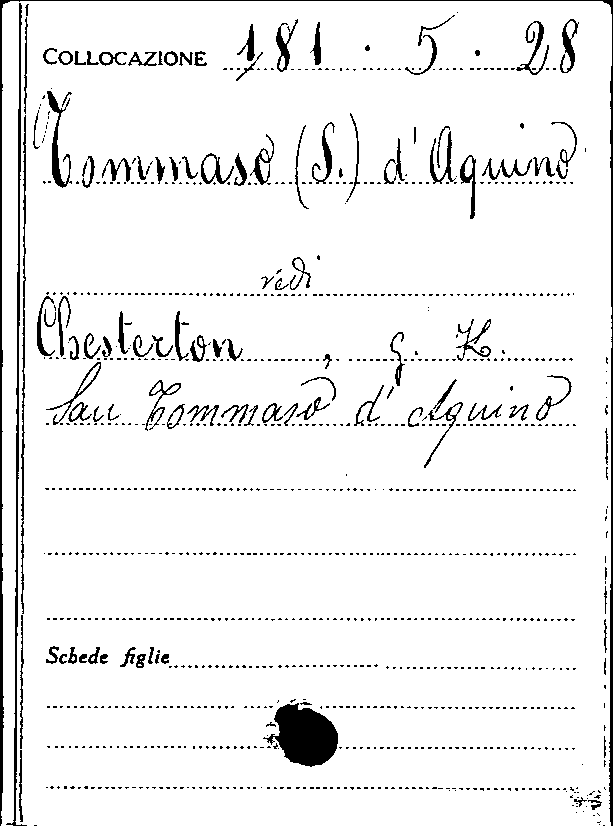 COLLOCAZIONE 181 . 5 . 28
Tommaso (S.) d'Aquino
vedi
Chesterton, G. K.
San Tommaso d'Aquino
Schede figlie